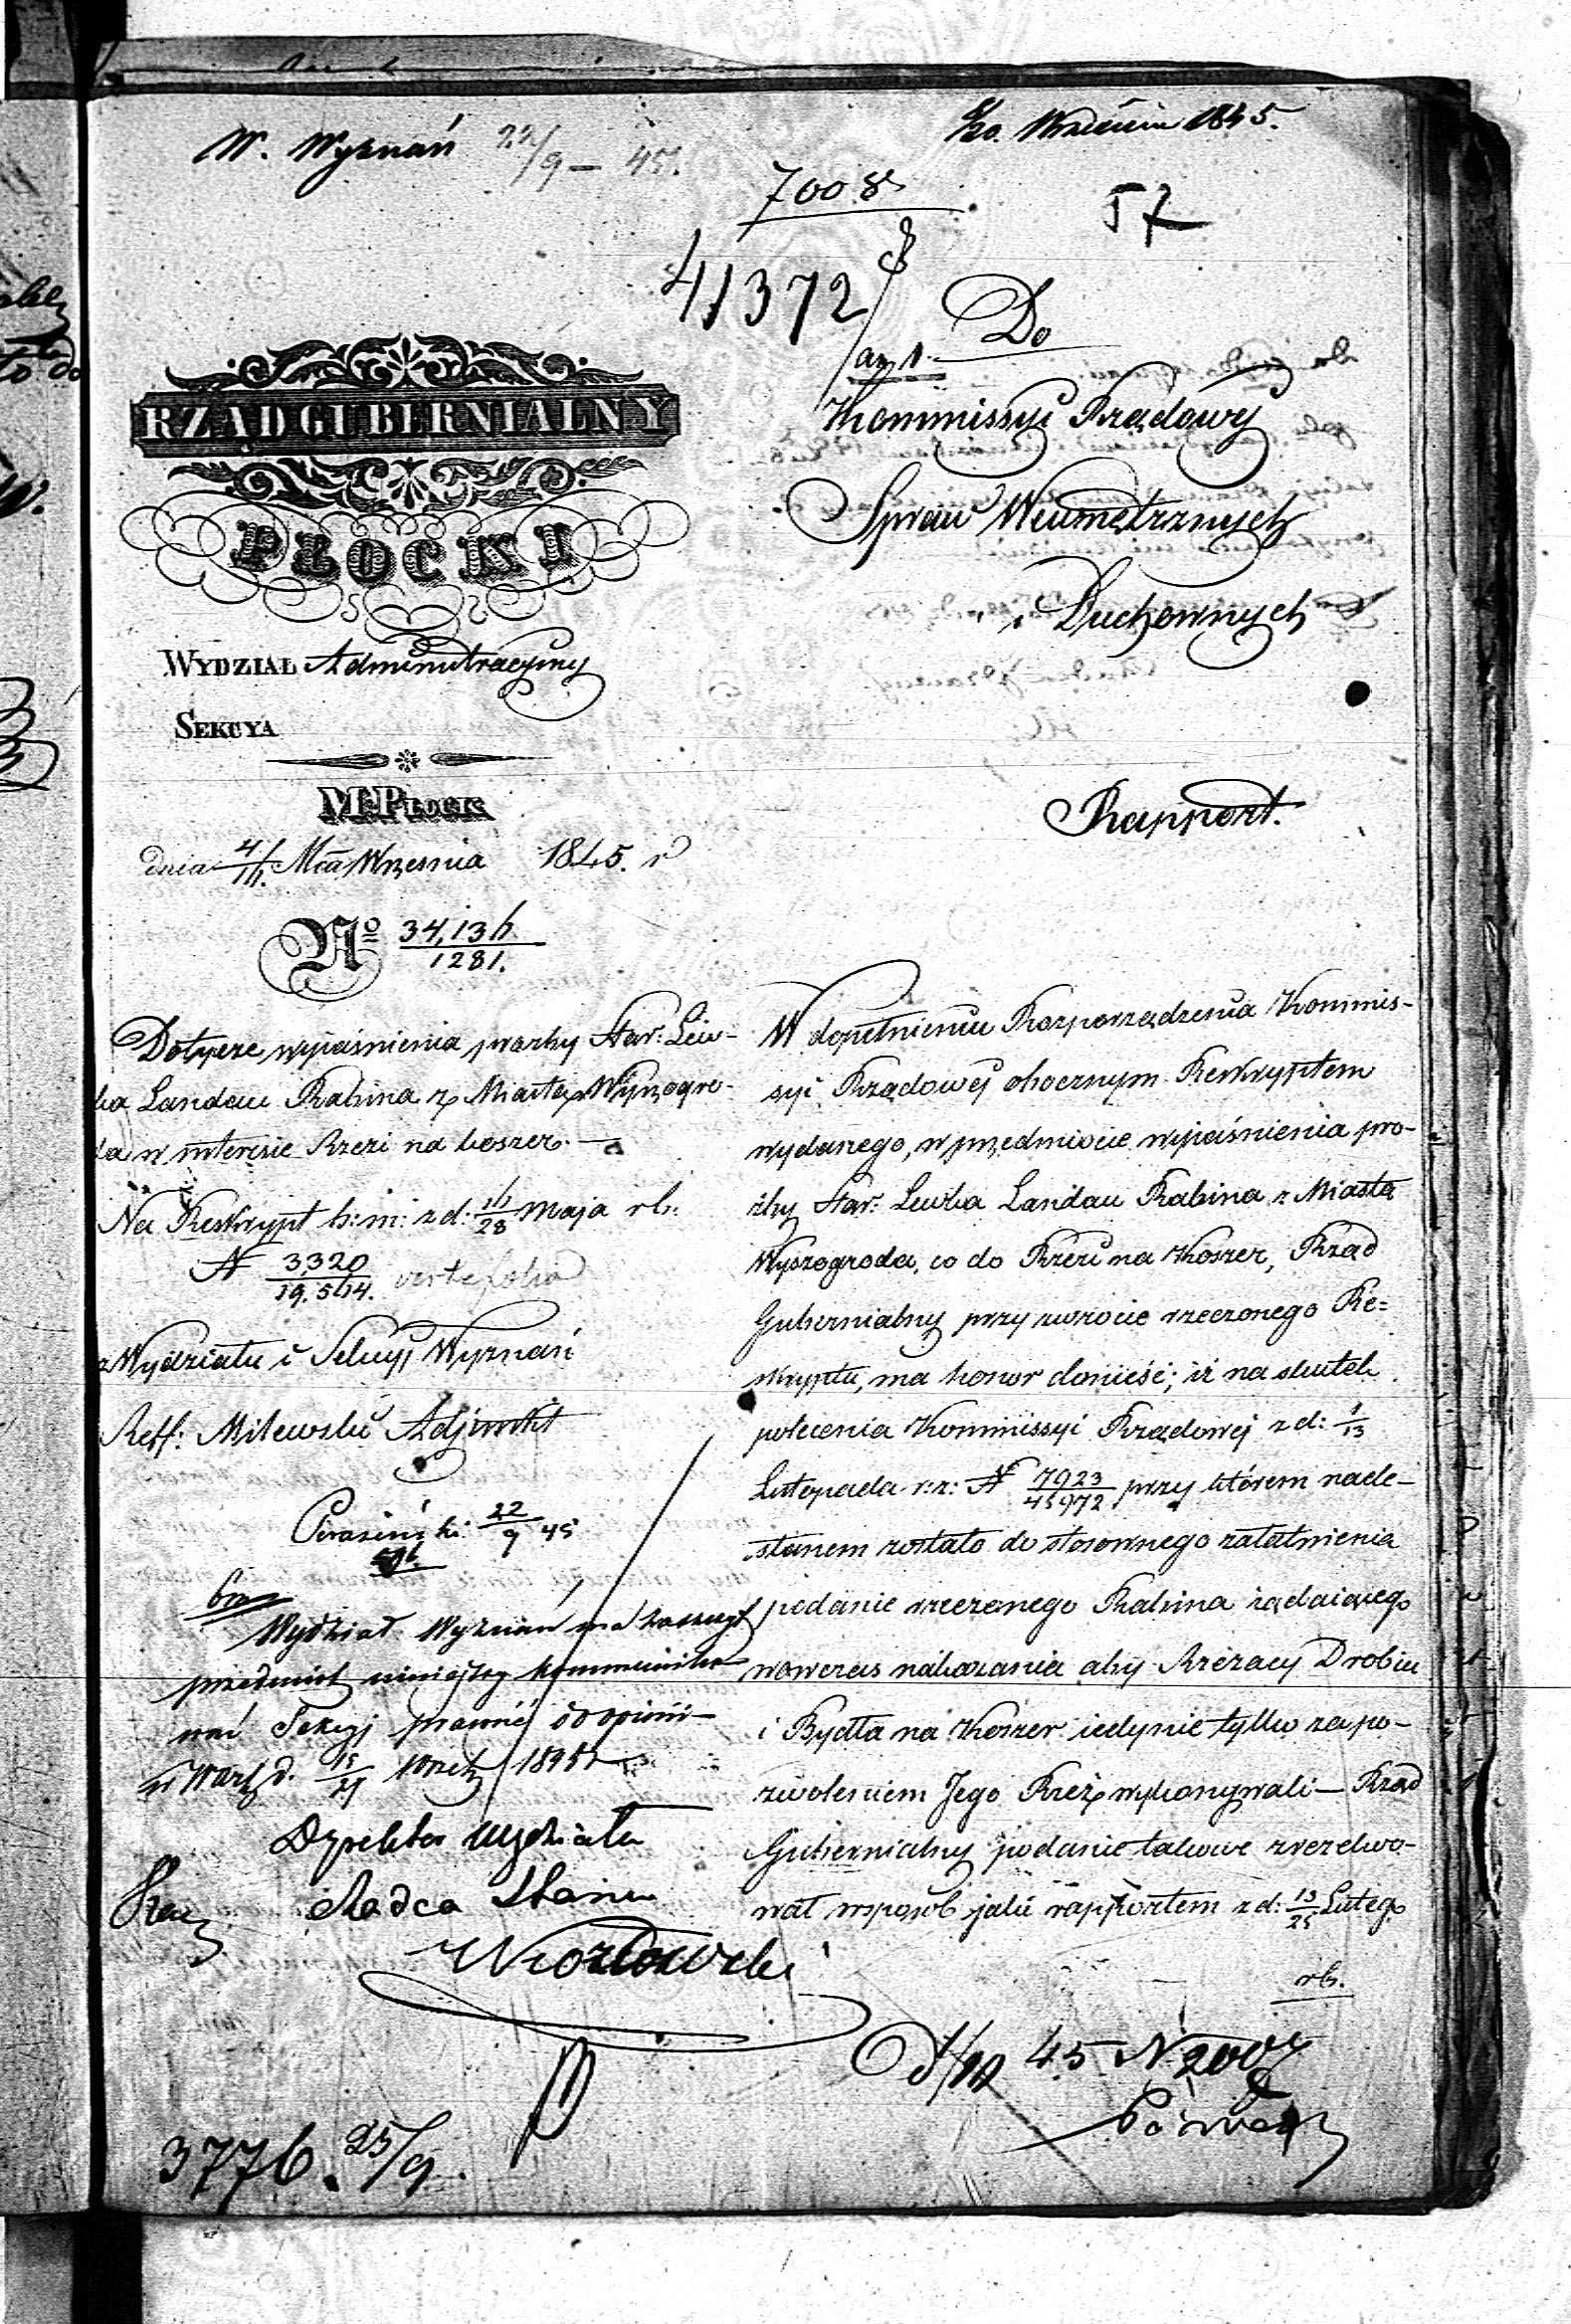 W. Wyznań 22/9 – 45.
8/20. Września 1845.
7008
57
41372
Do
Kommissyi Rządowéj
Spraw Wewnętrznych
i Duchownych
RZĄD GUBERNIALNY
PŁOCKI
WYDZIAŁ Administracyjny
SEKCYA
M. PŁOCK
dnia 4/ Mca Września 1845. r
Rapport.
No 34,136
1281.
Dotycze wyjaśnienia prozby Star: Lew-
ka Landau Rabina z Miasta Wyszogro-
da w interesie Rzezi na koszer.
Na Reskrypt t: m: z d: 16/28 Maja rb.
N 3320
19.564.
z Wydziału i Sekcyi Wyznań
Reff: Milewski Adjunkt
22/9 45
Wydział Wyznań ma zaszczyt
przedmiot niniejszy kommuniko-
wać Sekcyi prawnéj do opinii
w Warsz d.
Dyrektor Wydziału
Radca Stanu
3776. 25/9.
W dopełnieniu Rozporządzenia Kommis-
syi Rządowéj obocznym Reskryptem
wydanego, w przedmiocie wyjaśnienia pro-
źby Star: Lewka Landau Rabina z Miasta
Wyszogroda, co do Rzezi na Koszer, Rząd
Gubernialny przy zwrocie rzeczonego Re=
skryptu, ma honor donieść; iż na skutek
polecenia Kommissyi Rządowéj z d: 1/13
Listopada r: z: N 7923/45972 przy którem nade-
słanem zostało do stosownego załatwienia
podanie rzeczonego Rabina żądaiącego
wowczas nakazania aby Rzezacy Drobiu
i Bydła na Koszer iedynie tylko za po-
zwoleniem Jego Rzeź wykonywali – Rząd
Gubernialny podanie takowe zrezelwo-
wał wsposób jaki rapportem z d: 13/25 Lutego
rb.
45 N